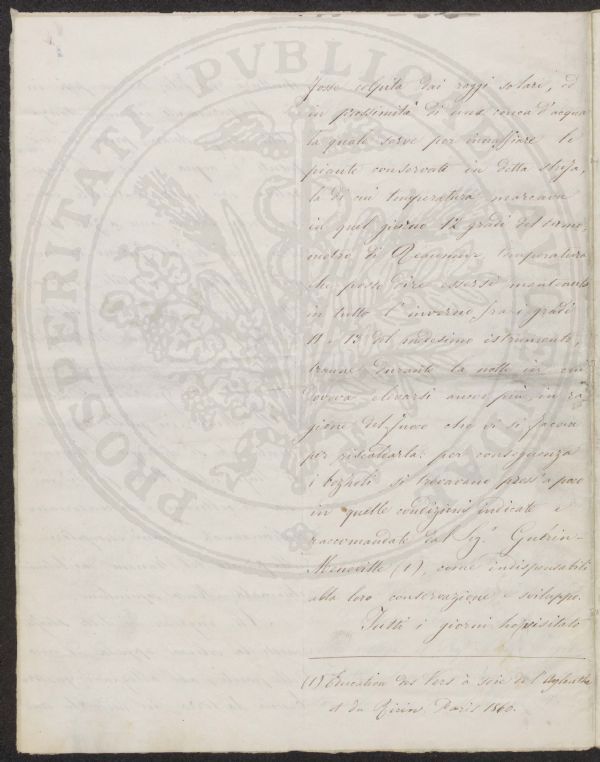 fosse colpita dai raggi solari, ed
in prossimità di una conca d'acqua
la quale serve per innaffiare le
piante conservate in detta stufa,
la di cui temperatura marcava
in quel giorno 12 gradi del termo-
metro di Reaumur, temperatura
che posso dire essersi mantenuta
in tutto l'inverno fra i gradi
11 e 13 del medesimo istrumento,
tranne durante la notte in cui
doveva elevarsi ancor più in ra
gione del fuoco che vi si faceva
per riscaldarla: per conseguenza
i bozzoli si trovavano press'a poco
in quelle condizioni indicate e
raccomandate dal Sig.r Guérin-
Méneville (1), come indispensabili
alla loro conservazione e sviluppo.
Tutti i giorni ho visitato
(1) Education des Vers à soie de l'Aylanthe
et du Ricin. Paris 1860.
PROSPERITATI PVBLICAE AVGENDAE